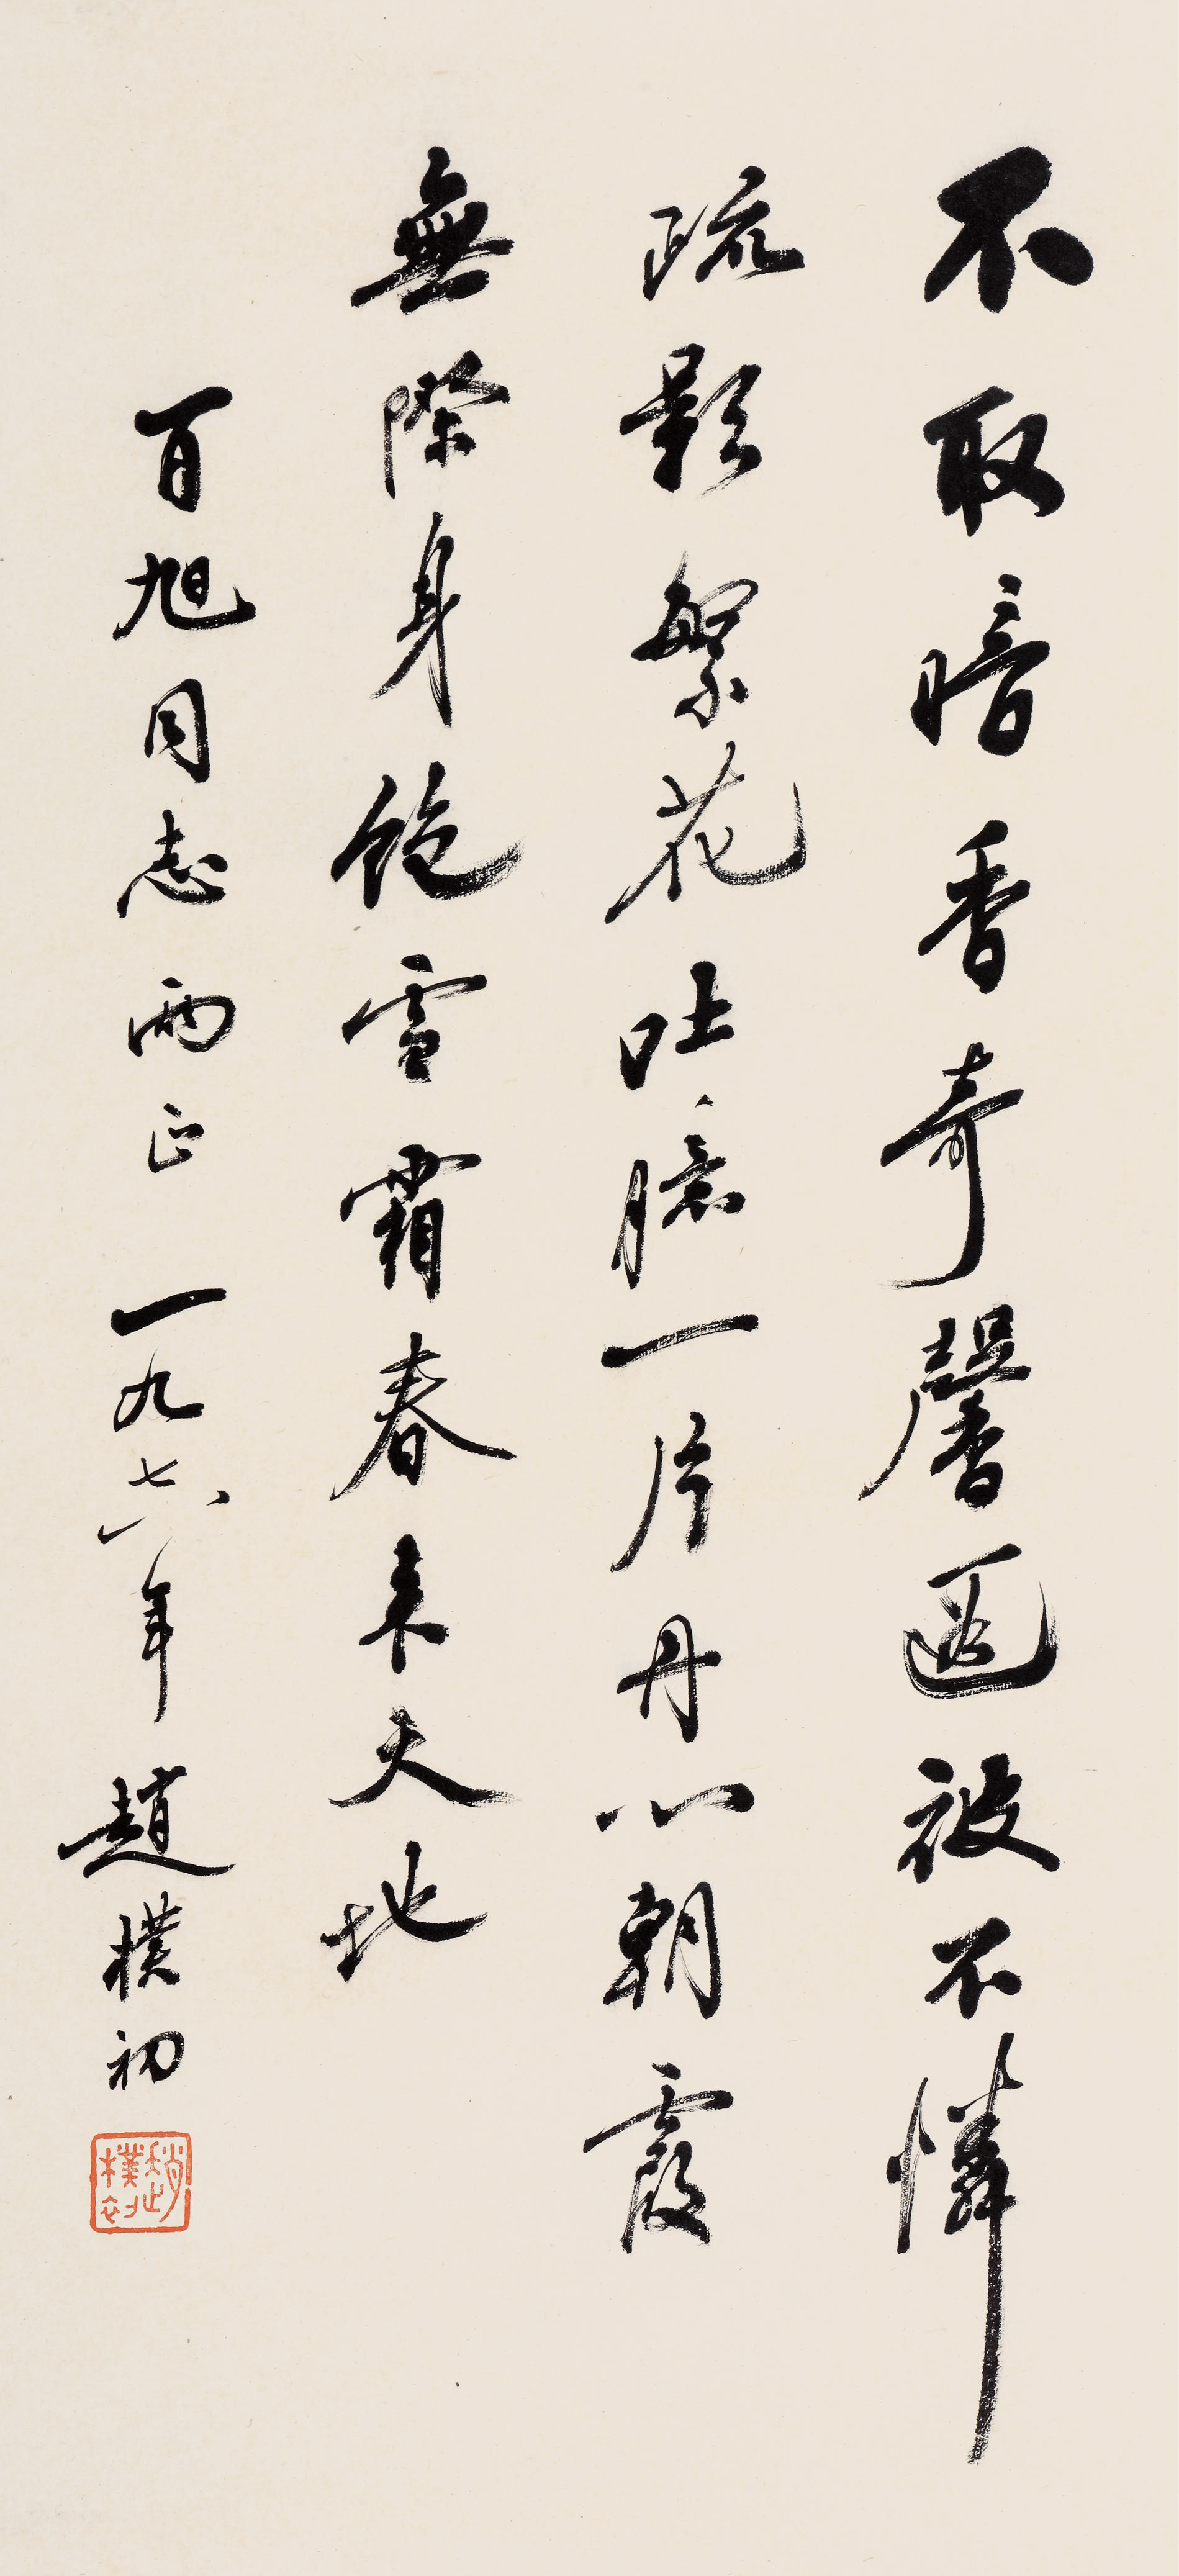 不取暗香奇馨遐被不憐
疏影繁花吐臆一片丹心朝霞
無際身飽雪霜春来天地
百旭同志兩正 一九七六年 趙樸初
趙樸初